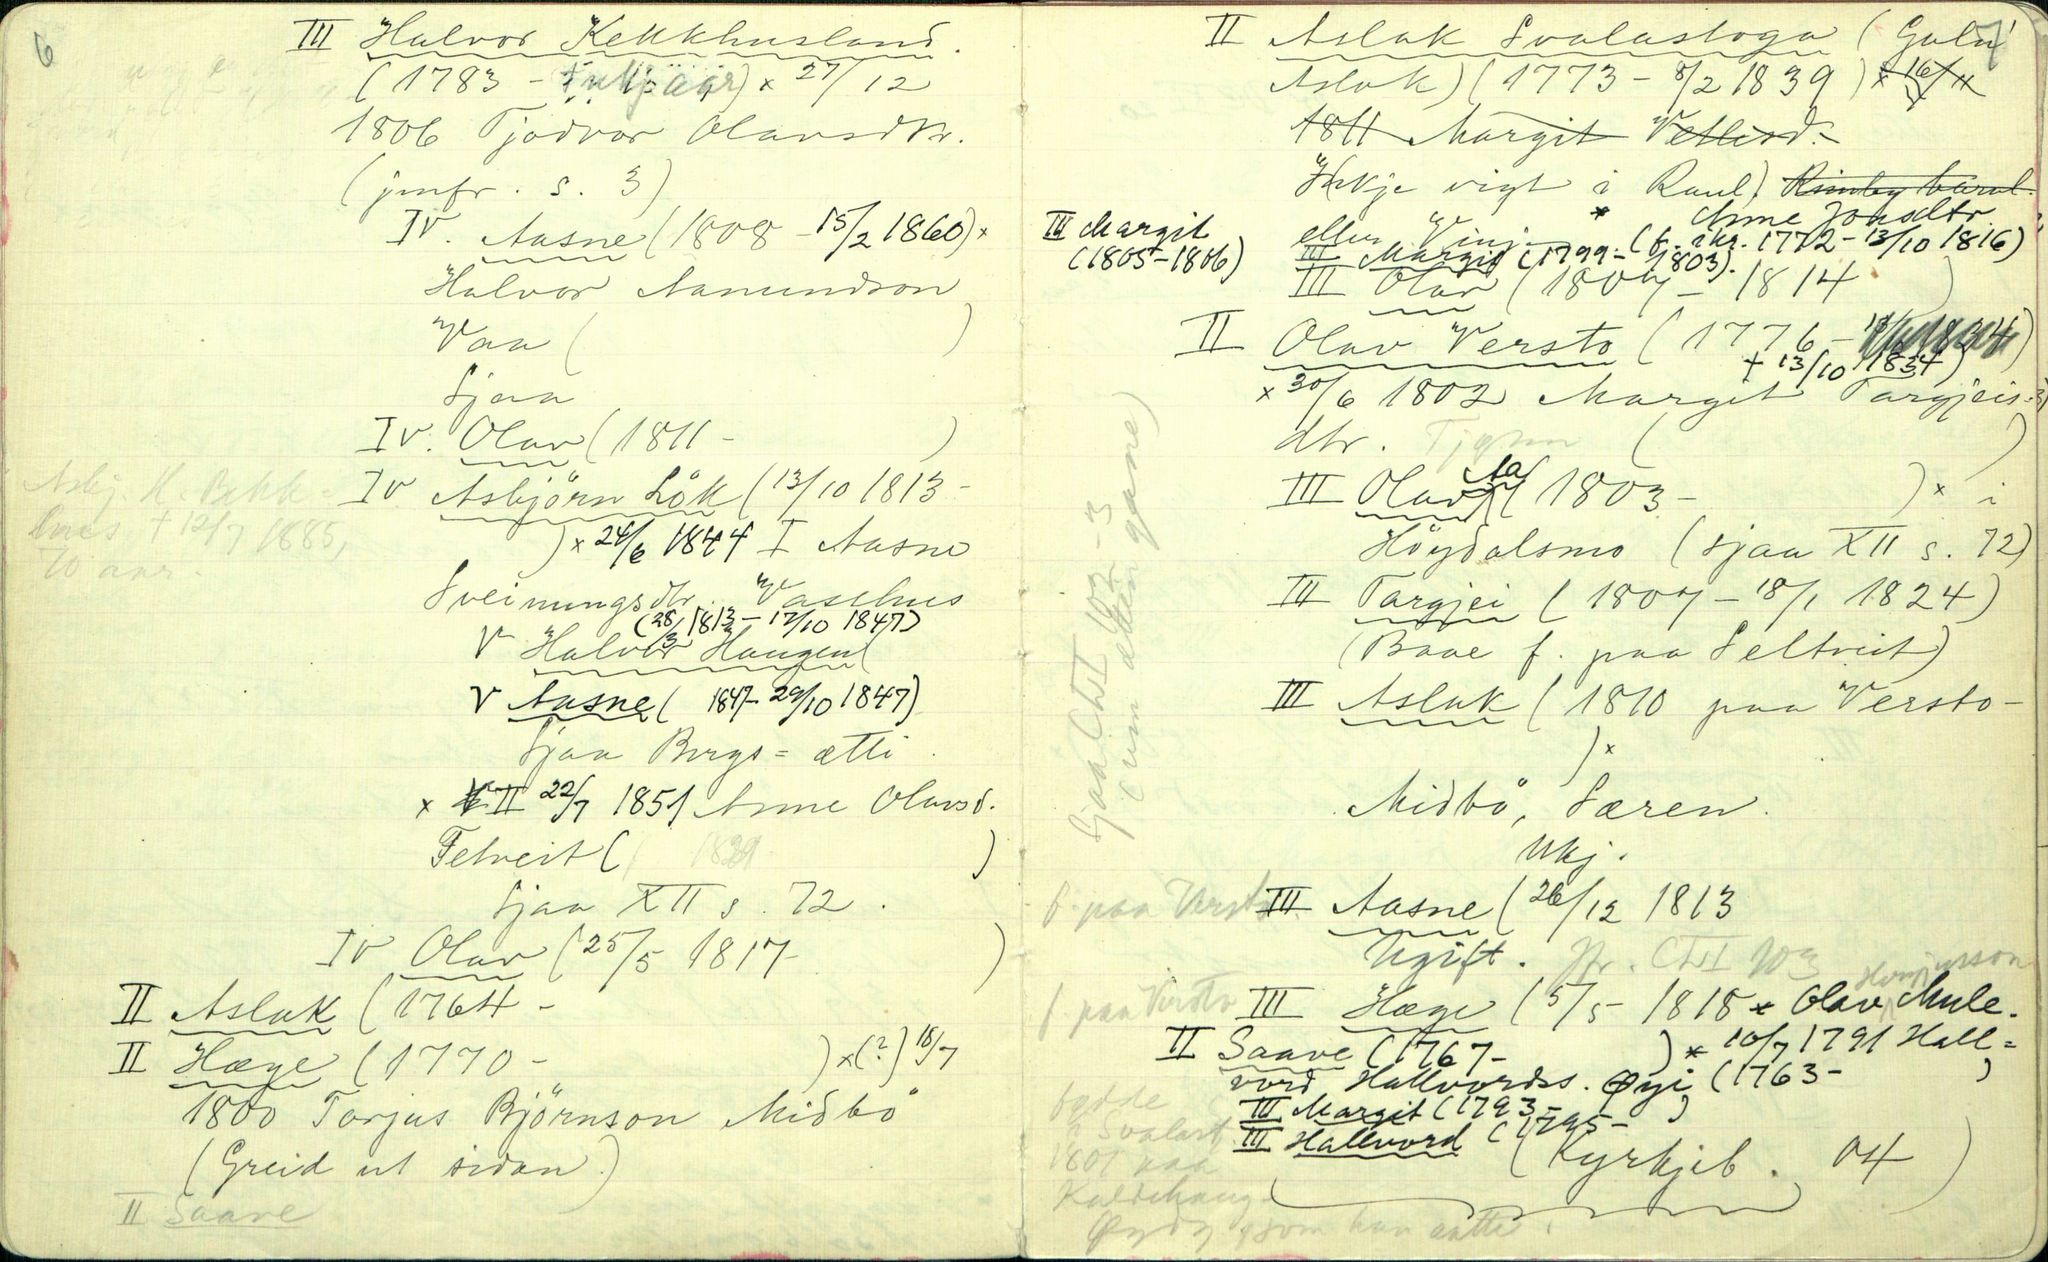 6
III Halvor Kekkhusland.
(1783 - ) x 27/12
1806 Tjodvor Olavsdtr.
(jmfr. s. 3)
IV. Aasne (1808 - 15/2 1860) x
Halvor Aamundson
Vaa ( )
Sjaa
IV. Olav (1811 - )
IV Asbjörn Lök (13/10 1813 -
) x 24/6 1844 I Aasne
Sveinungsdtr. Vaschus
(28/3 1813 - 17/10 1847)
V Halvor Haugen (
V Aasne ( 1847 - 29/10 1847)
Sjaa Bergs = ætti.
x II 22/7 1851 Anne Olavsd.
Felveit ( 1829 )
Sjaa XII s. 72.
IV Olav (25/5 1817 - )
Asbj. H. Bekk=
hus, + 12/7 1885,
70 aar.
II Aslak (1764 -
II Hæge (1770 - ) x (?) 18/7
1800 Torjus Björnson Midbö
(Greid ut sidan)
II Saave
7
II Aslak Svalastoga (Gula!
Aslak) (1773 - 8/2 1839) x 16/11
1811 Margit Vetlesd.
Ikkje vigt i Raul.
eller Vinje x Anne Jonsdtr.
(f. ikr. 1772 - 13/10 1816)
III Margit (1799 - 1803).
III Margit
(1805 - 1806)
III Olav (1807 - 1814 )
II Olav Versto (1776 -
+ 13/10 1834)
x 30/6 1802 Margit Targjeis-
dtr. ( )
III Olav (1803 - ) x i
Höydalsmo (sjaa XII s. 72)
III Targjei (1807 - 18/1 1824)
(Baae f. paa Seltveit)
III Aslak (1810 paa Versto -
) x
Midbö, Særen.
Ukj.
f. paa Versto III Aasne (26/12 1813
Ugift.
f. paa Versto III Hæge (5/5 - 1818 x Olav Mule.
II Saave (1767 - ) x 10/7 1791 Hall=
vord Hallvordss. Øyi (1763 - )
III Margit (1793 - )
III Hallvord (1795 -
(Kyrkjeb. 04 )
bydde
Svalast.
1801 paa
Kaldehaug
Øydg. som han aatte.